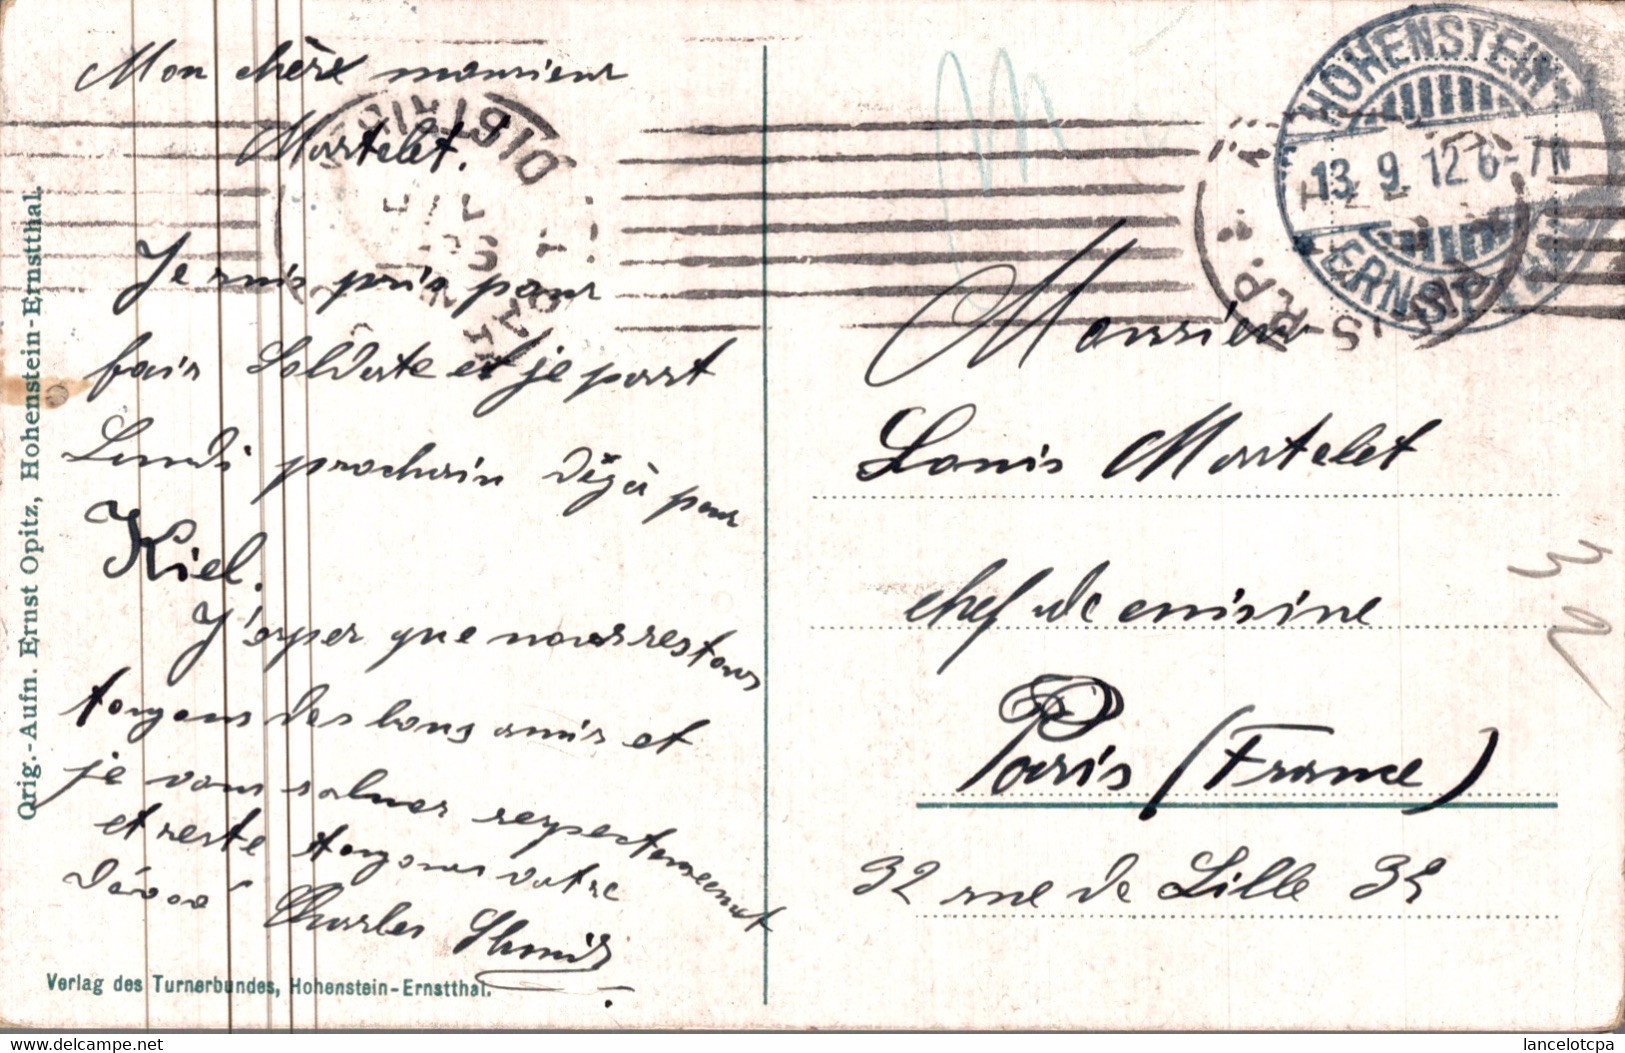 Mon chère monsieur
Martelet.
Je suis pris pour
fair Soldate et je part
Lundi prochain déjà pour
Kiel.
J'esper que nous restons
tougous des bons amis et
je vous saluer respectamement
et reste tougours votre
Charles Shmid.
Verlag des Turnerbundes, Hohenstein-Ernstthal.
Orig.-Aufn. Ernst Opitz, Hohenstein-Ernstthal.
HOHENSTEIN-
13.9.12 6-7N
ERNSTTHAL
Monsieur
Louis Martelet
chef de cuisine
Paris (France)
32 rue de Lille 32
delcampe.net
lancelotcpa